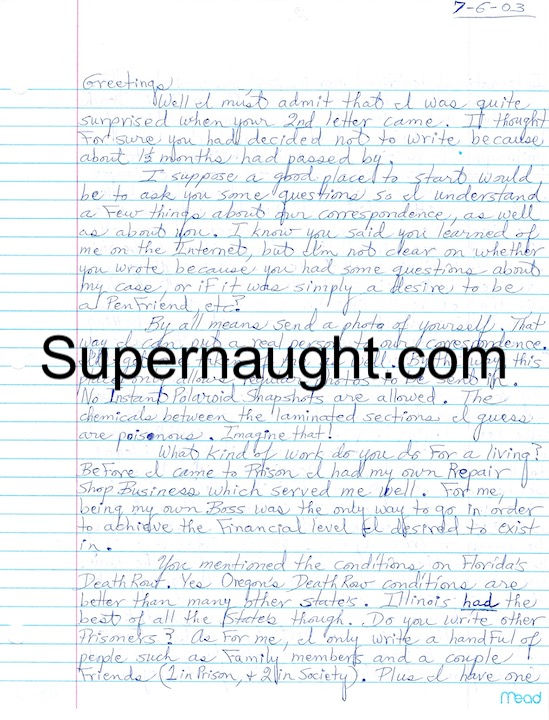 7-6-03
Greetings,
Well I must admit that I was quite
surprised when your 2nd letter came. I thought
For sure you had decided not to write because
about 1½ months had passed by.
I suppose a good place to start would
be to ask you some questions so I understand
a Few things about our correspondence, as well
as about you. I know you said you learned of
me on the Internet, but I'm not clear on whether
you wrote because you had some questions about
my case, or iF it was simply a desire to be
a PenFriend, etc?
By all means send a photo of yourself. That
way I can put a real person to our correspondence.
Supernaught.com
this
place only allows regular photos to be sent in.
No Instant Polaroid Snapshots are allowed. The
chemicals between the laminated sections I guess
are poisonous. Imagine that!
What kind of work do you do For a living?
BeFore I came to Prison I had my own Repair
Shop Business which served me well. For me,
being my own Boss was the only way to go in order
to achieve the Financial level I desired to exist
in.
You mentioned the conditions on Florida's
Death Row. Yes Oregon's Death Row conditions are
better than many other state's. Illinois had the
best of all the State's though. Do you write other
Prisoners? As For me, I only write a handFul of
people such as Family members and a couple
Friends (1 in Prison, + 2 in Society). Plus I have one
Mead